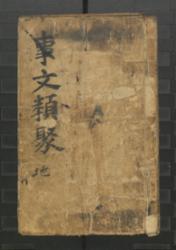 事文類聚
地